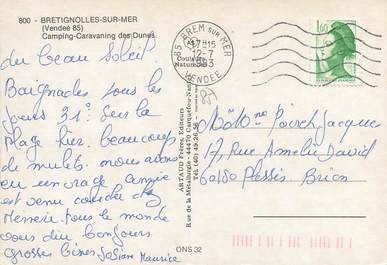 800 - BRETIGNOLLES-SUR-MER
(Vendée 85)
Camping-Caravaning des Dunes
du beau Soleil.
Baignades tous les
jours 31° Sur la
plage hier beaucoup
de mulets. nous avons
eu un orage
est venu coucher
tous le monde
vous dis bonjours
grosses bises Josiane Maurice
Couleurs
ARTAUD Frères, Editeurs
Rue de la Métallurgie - 44470 Carquefou-Nantes
ONS 32
85 BREM-SUR-MER
17H15
12-7
1983
VENDEE
1,60
Jacque
17, Rue Amélie David
60150 Plessis Brion